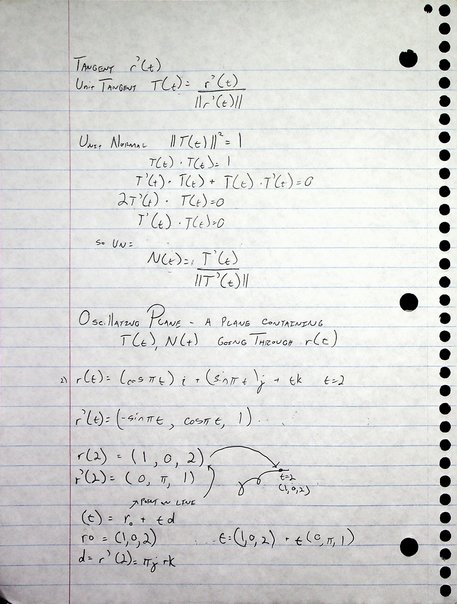 Tangent r'(t)
Unit Tangent T(t) = r'(t) / ||r'(t)||
Unit Normal ||T(t)||² = 1
T(t) · T(t) = 1
T'(t) · T(t) + T(t) · T'(t) = 0
2T'(t) · T(t) = 0
T'(t) · T(t) = 0
so UN =
N(t) = T'(t) / ||T'(t)||
Oscillating Plane - A plane containing
T(t), N(t) going through r(t)
2) r(t) = (cos πt) i + (sin πt) j + tk t=2
r'(t) = (-sin πt, cos πt, 1)
r(2) = (1, 0, 2)
r'(2) = (0, π, 1)
t=2
(1,0,2)
point on line
(t) = r₀ + td
ro = (1,0,2) t = (1,0,2) + t(0,π,1)
d = r'(2) = πj + k